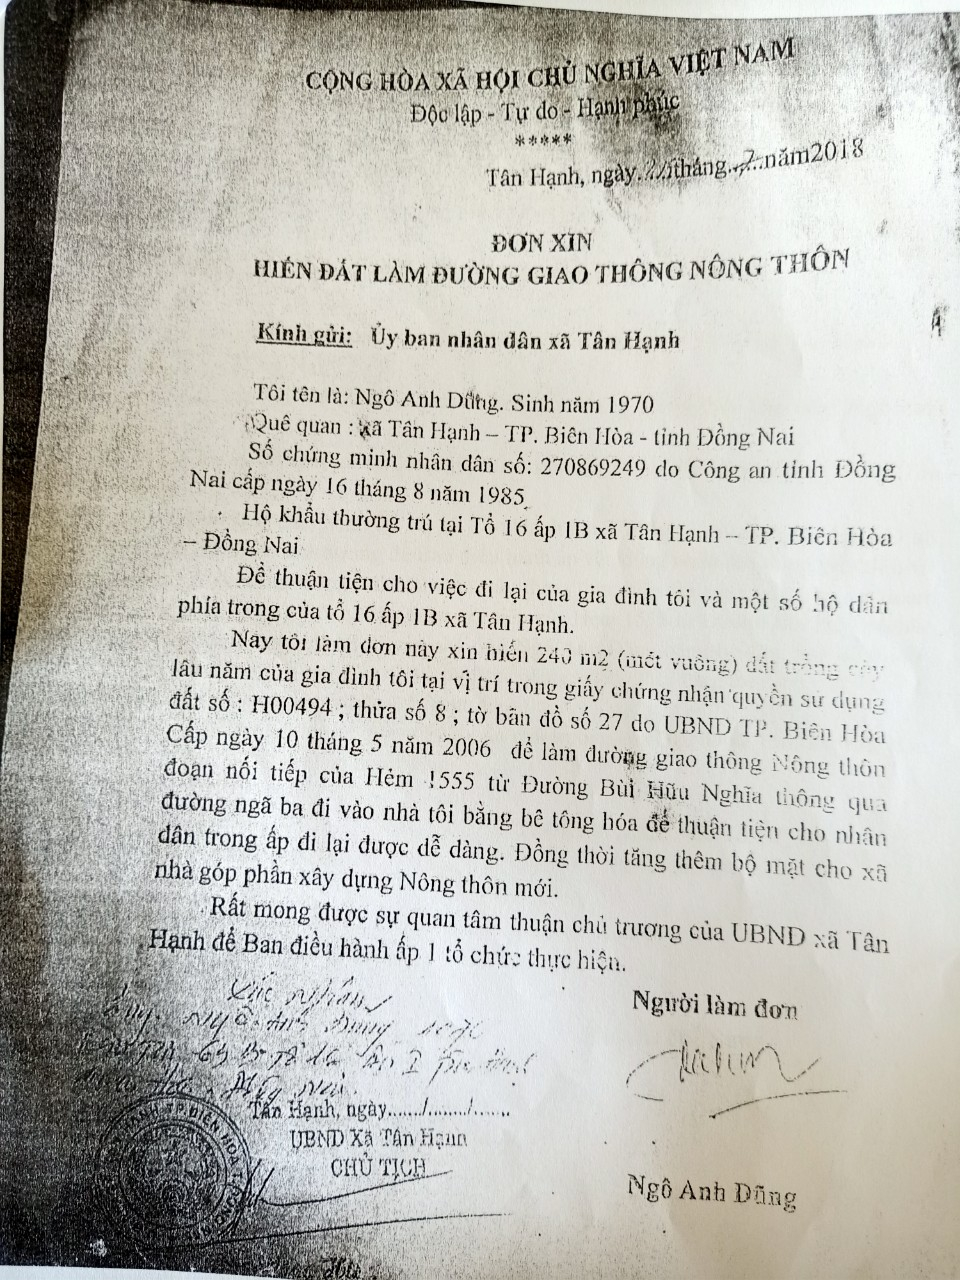 CỘNG HÒA XÃ HỘI CHỦ NGHĨA VIỆT NAM
Độc lập - Tự do - Hạnh phúc
*****
Tân Hạnh, ngày tháng..7..năm2018
ĐƠN XIN
HIẾN ĐẤT LÀM ĐƯỜNG GIAO THÔNG NÔNG THÔN
Kính gửi: Ủy ban nhân dân xã Tân Hạnh
Tôi tên là: Ngô Anh Dũng. Sinh năm 1970
Quê quan : xã Tân Hạnh – TP. Biên Hòa - tỉnh Đồng Nai
Số chứng minh nhân dân số: 270869249 do Công an tỉnh Đồng
Nai cấp ngày 16 tháng 8 năm 1985
Hộ khẩu thường trú tại Tổ 16 ấp 1B xã Tân Hạnh – TP. Biên Hòa
– Đồng Nai
Để thuận tiện cho việc đi lại của gia đình tôi và một số hộ dân
phía trong của tổ 16 ấp 1B xã Tân Hạnh.
Nay tôi làm đơn này xin hiến 240 m2 (mét vuông) đất trồng cây
lâu năm của gia đình tôi tại vị trí trong giấy chứng nhận quyền sử dụng
đất số : H00494 ; thửa số 8 ; tờ bản đồ số 27 do UBND TP. Biên Hòa
Cấp ngày 10 tháng 5 năm 2006 để làm đường giao thông Nông thôn
đoạn nối tiếp của Hẻm 1555 từ Đường Bùi Hữu Nghĩa thông qua
đường ngã ba đi vào nhà tôi bằng bê tông hóa để thuận tiện cho nhân
dân trong ấp đi lại được dễ dàng. Đồng thời tăng thêm bộ mặt cho xã
nhà góp phần xây dựng Nông thôn mới.
Rất mong được sự quan tâm thuận chủ trương của UBND xã Tân
Hạnh để Ban điều hành ấp 1 tổ chức thực hiện.
Người làm đơn
Xác nhận
Ngô Anh Dũng
Tân Hạnh, ngày....../......./.......
UBND Xã Tân Hạnh
CHỦ TỊCH
Ngô Anh Dũng